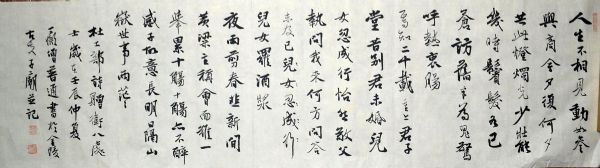 人生不相見動如參
與商今夕復何夕
共此燈燭光少壯能
幾時鬢髮各已
蒼訪舊半為鬼驚
呼熱衷腸
焉知二十載重上君子
堂昔別君未婚兒
女忽成行怡然敬父
執問我來何方問答
未及已兒女忽成行
兒女羅酒漿
夜雨剪春韭新間
黃粱主稱會面難一
舉累十觴十觴亦不醉
感子故意長明日隔山
嶽世事兩茫
杜工部詩贈衛八處
士歲在壬辰仲夏
僧普通書於金陵
夫子廟並記